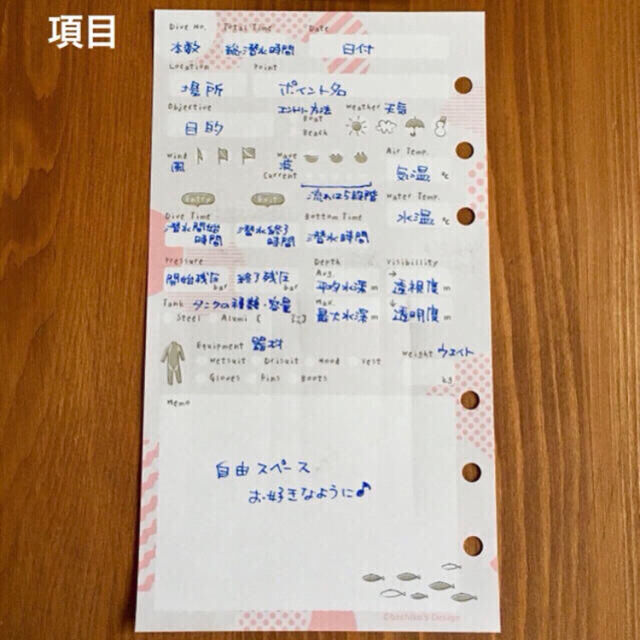 項目
Dive No. Total Time Date
本数 総潜水時間 日付
Location Point
場所 ポイント名
Objective エントリー方法 Weather 天気
目的 Boat
Beach
Wind Wave Air Temp.
風 波 気温 ℃
Current
流れは5段階 Water Temp.
Entry Exit 水温 ℃
Dive Time Bottom Time
潜水開始時間 潜水終了時間 潜水時間
Pressure Depth Visibility
開始残圧 bar 終了残圧 bar Avg. 平均水深 m → 透視度 m
Tank タンクの種類・容量 Max. 最大水深 m ↓ 透明度 m
Steel Alumi (
Equipment 器材 Weight ウェイト
Wetsuit Drisuit Hood Vest
Gloves Fins Boots kg
Memo
自由スペース
お好きなように♪
©bachiko's Design